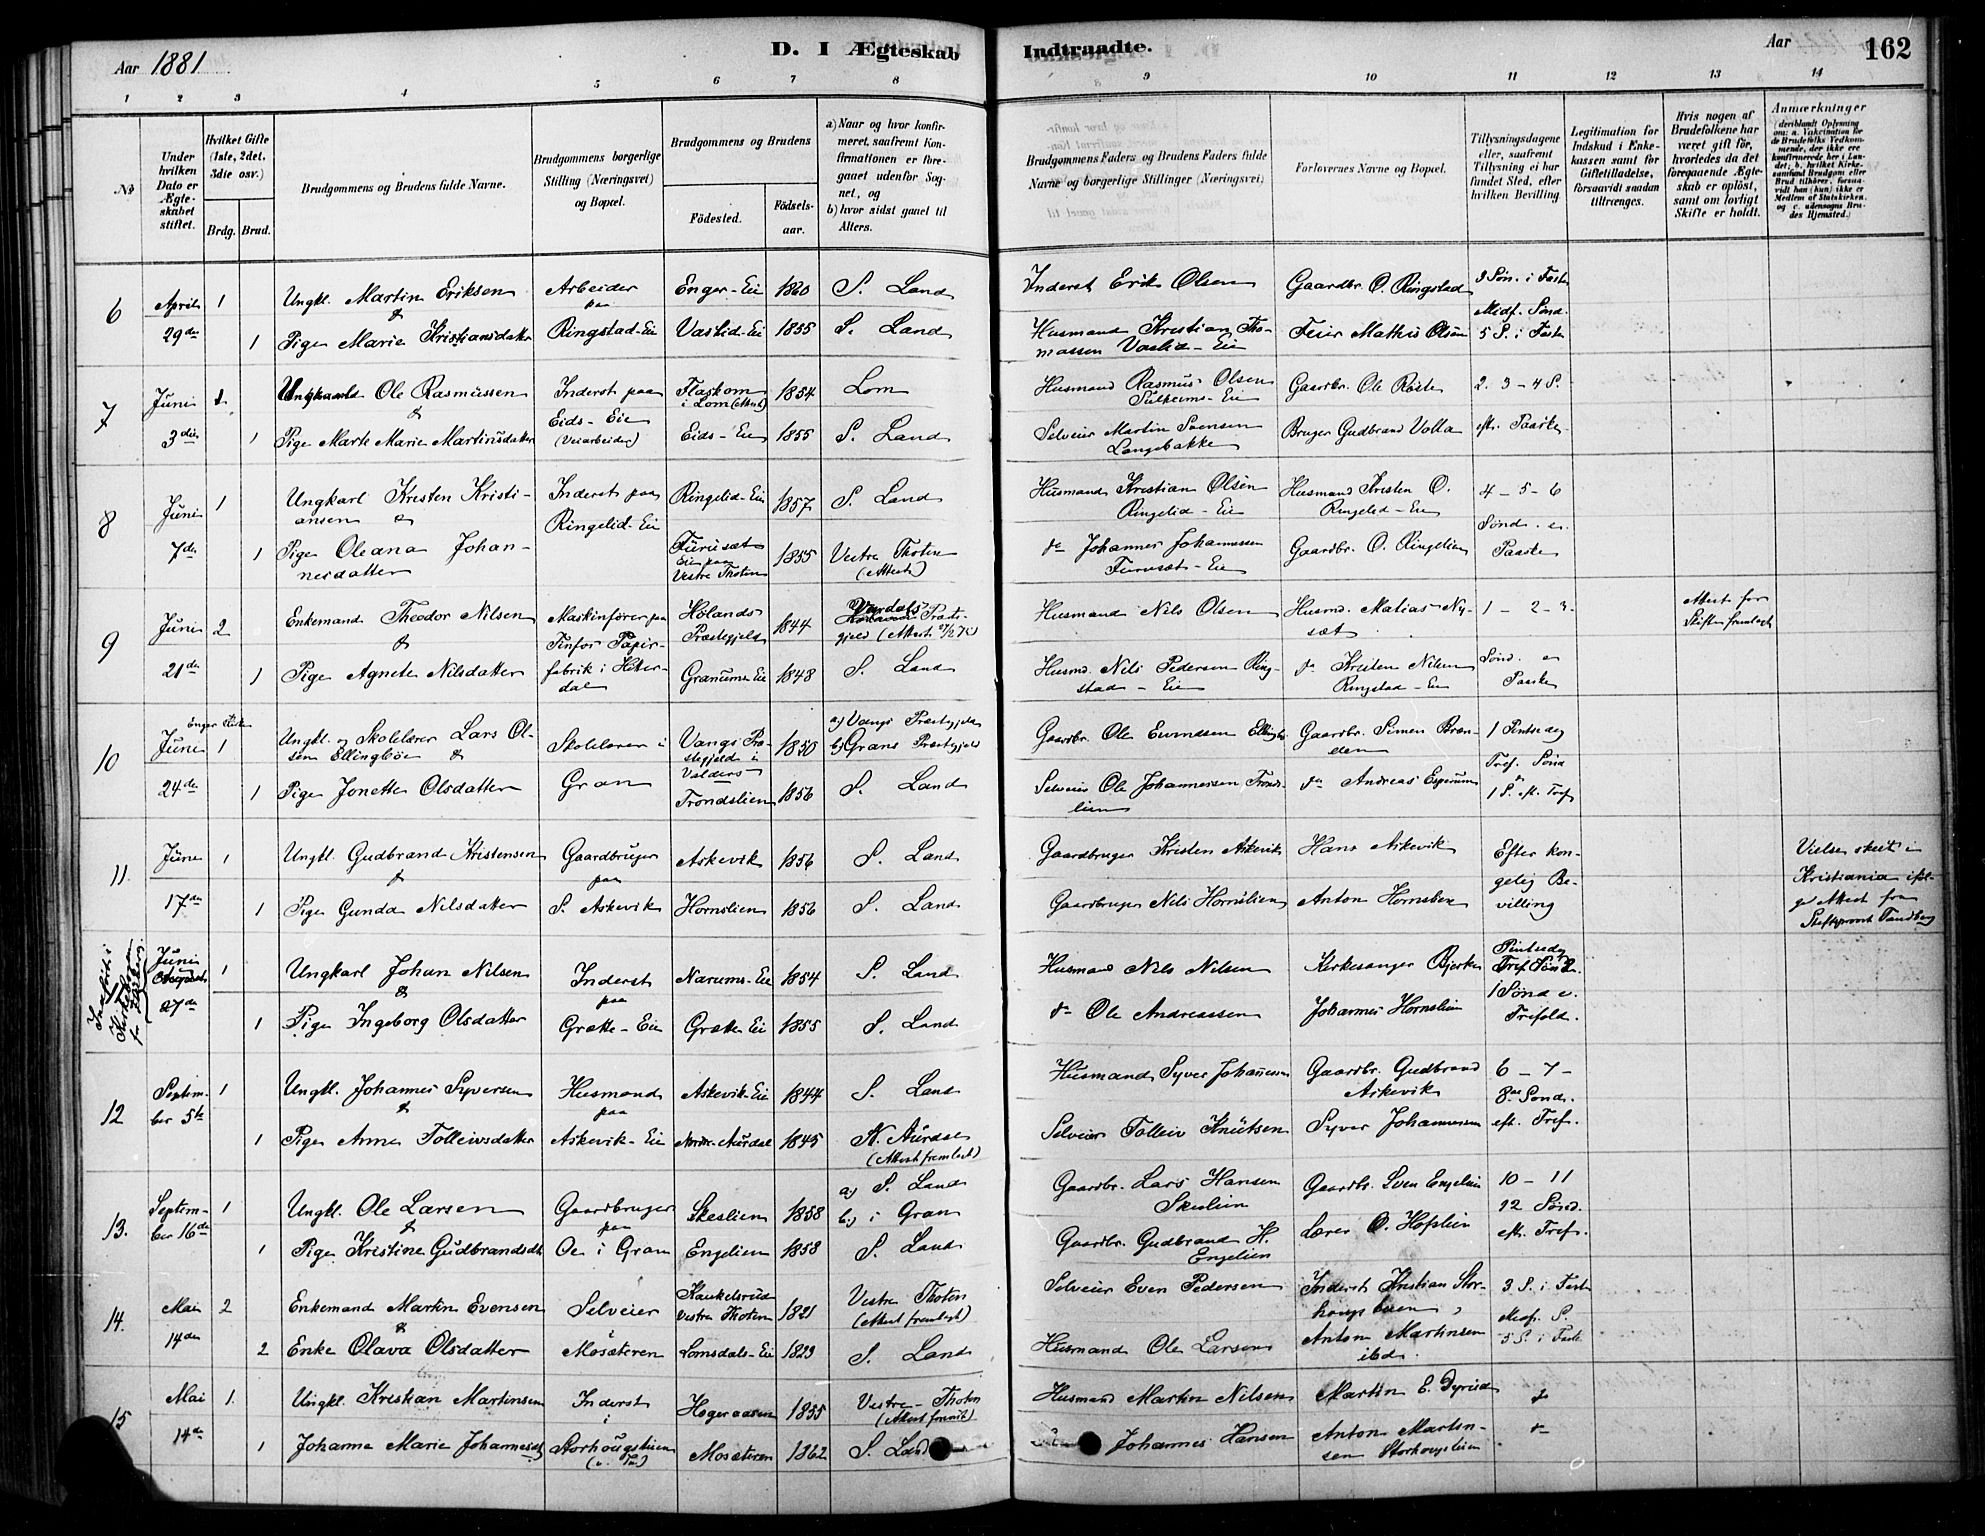 Aar 1881
D. I Ægteskab Indtraadte.
Aar
162
1 2 3 4 5 6 7 8 9 10 11 12 13 14
No
Under hvilken Dato er Ægteskabet stiftet.
Hvilket Gifte (1ste, 2det, 3die osv.)
Brdg. Brud.
Brudgommens og Brudens fulde Navne.
Brudgommens borgerlige Stilling (Næringsvei) og Bopæl.
Brudgommens og Brudens
Fødested.
Fødselsaar.
a) Naar og hvor konfirmeret, saafremt Konfirmationen er foregaaet udenfor Sognet, og
b) hvor sidst gaaet til Alters.
Brudgommens Faders og Brudens Faders fulde Navne og borgerlige Stillinger (Næringsvei)
Forlovernes Navne og Bopæl.
Tillysningsdagene eller, saafremt Tillysning ei har fundet Sted, efter hvilken Bevilling
Legitimation for Indskud i Enkekassen samt for Giftetilladelse, forsaavidt saadan tiltrænges.
Hvis nogen af Brudefolkene har været gift før, hvorledes da det foregaaende Ægteskab er opløst, samt om lovligt Skifte er holdt.
Anmærkninger
(deriblandt Oplysning om: a. Vakcination for de Brudefolks Vedkommende, der ikke ere konfirmerede her i Landet; b. hvilket Kirkesamfund Brudgom eller Brud tilhører, forsaavidt han (hun) ikke er Medlem af Statskirken, og c. udensogns Brudes Hjemsted.)
6 April 1 Ungkl. Martin Eriksen Arbeider Enger-Eie 1860 S. Land Inderst Erik Olsen Gaardbr. O. Ringstad 3 Søn. i Faste
& paa Midf. Sønd.
29de 1 Pige Marie Kristiansdatter Ringstad-Eie Vaslid-Eie 1855 S. Land Husmand Kristian Thomassen Vaslid-Eie Feier Mathis Olsen 5 S. i Faste
7 Juni 1 Ungkarl Ole Rasmussen Inderst paa Flaskom i Lom (Attest) 1854 Lom Husmand Rasmus Olsen Sulheims-Eie Gaardbr. Ole Røste 2. 3 - 4 S.
& Eids-Eie
3die 1 Pige Marte Marie Martinsdatter (Veiarbeider) Eids-Eie 1855 S. Land Selveier Martin Svensen Langebakke Bruger Gudbrand Volla eft. Paaske
8 Juni 1 Ungkarl Kristen Kristiansen & Inderst paa Ringelid-Eie Ringelid-Eie 1857 S. Land Husmand Kristian Olsen Ringelid-Eie Husmand Kristen O. Ringelid-Eie 4 - 5 - 6
7de 1 Pige Oleana Johannesdatter Furusæt Eie paa Vestre Thoten 1855 Vestre Thoten (Attest) do Johannes Johannessen Furusæt-Eie Gaardbr. O. Ringelien Sønd. e. Paaske
9 Juni 2 Enkemand Theodor Nilsen Maskinfører paa Hølands Præstegjeld 1844 Vardals Præstegjeld (Attest Husmand Nils Olsen Husmd. Matias Nysæt 1 - 2 - 3 Attest for Skiften fremlagt
& Tinfos Papirfabrik i Hiterdal
21de 1 Pige Agnete Nilsdatter Granums Eie 1848 S. Land Husmd. Nils Pedersen Ringstad-Eie do Kristen Nilsen Ringstad-Eie Sønd. e Paaske
Enger Kirke
10 Juni 1 Ungkl. og Skolelærer Lars Olsen Ellingbøe & Skolelærer i Gran Vangs Præstegjeld i Valders 1850 a) Vangs Præstegjeld b) Grans Præstegjeld Gaardbr. Ole Evendsen Ellingbø Gaardbr. Simen Brænden 1 Pintsedag
24de 1 Pige Jonette Olsdatter Trondslien 1856 S. Land Selveier Ole Johannessen Trondslien do Andreas Esperum Tref. Sønd 1 S. eft. Tref
11. Juni 1 Ungkl. Gudbrand Kristensen Gaardbruger Askevik 1856 S. Land Gaardbruger Kristen Askevik Hans Askevik Efter kongelig Bevilling Vielsen skeet i Kristiania ifølge Attest fra Stiftsprovst Tandberg
& paa
17de 1 Pige Gunda Nilsdatter S. Askevik Hornslien 1856 S. Land Gaardbruger Nils Hornslien Anton Hornslien
Indført i Kirkebogen
Juni 27de 1 Ungkarl Johan Nilsen Inderst Narums-Eie 1854 S. Land Husmand Nils Nilsen Kirkesanger Bjerke Pintsedag Tref. Sønd.
& paa
1 Pige Ingeborg Olsdatter Grætte-Eie Grætte Eie 1855 S. Land do Ole Andreassen Johannes Hornslien 1 Sønd e. Trefold.
12 September 5te 1 Ungkl. Johannes Syversen Husmand Askevik-Eie 1844 S. Land Husmand Syver Johannessen Gaardbr. Gudbrand Askevik 6 - 7 -
& paa 8de Sønd.
1 Pige Anne Tolleivsdatter Askevik-Eie Nordr. Aurdal 1845 N. Aurdal (Attest fremlagt) Selveier Tolleiv Knutsen Syver Johannessen eft. Tref.
13. September 16de 1 Ungkl. Ole Larsen Gaardbruger Skeslien 1858 a) S. Land b.) i Gran Gaardbr. Lars Hansen Skeslien Gaardbr. Sven Engelien 10 - 11
& paa 12 Sønd.
1 Pige Kristine Gudbrandsdt Oe i Gran Engelien 1858 S. Land Gaardbr. Gudbrand H. Engelien Lærer O. Hofslien eft. Tref.
14. Mai 2 Enkemand Martin Evensen Selveier Kaukelsrud Vestre Thoten 1821 Vestre Thoten (Attest fremlagt) Selveier Even Pedersen Inderst Kristian Storhougsbøen 3 S. i Faste
& Midf. S.
14de 2 Enke Olava Olsdatter Mosæteren Lomsdals-Eie 1823 S. Land Husmand Ole Larsen Anton Martinsen ibd. 5 S. i Faste
15 Mai 1. Ungkl. Kristian Martinsen Inderst Høgeraasen 1855 Vestre-Thoten Husmand Martin Nilsen Martin E. Dyrud do
i
14de 1 Johanne Marie Johannesdt Storhougslien Mosæteren 1862 S. Land Johannes Hansen Anton Martinsen Storhougslien do